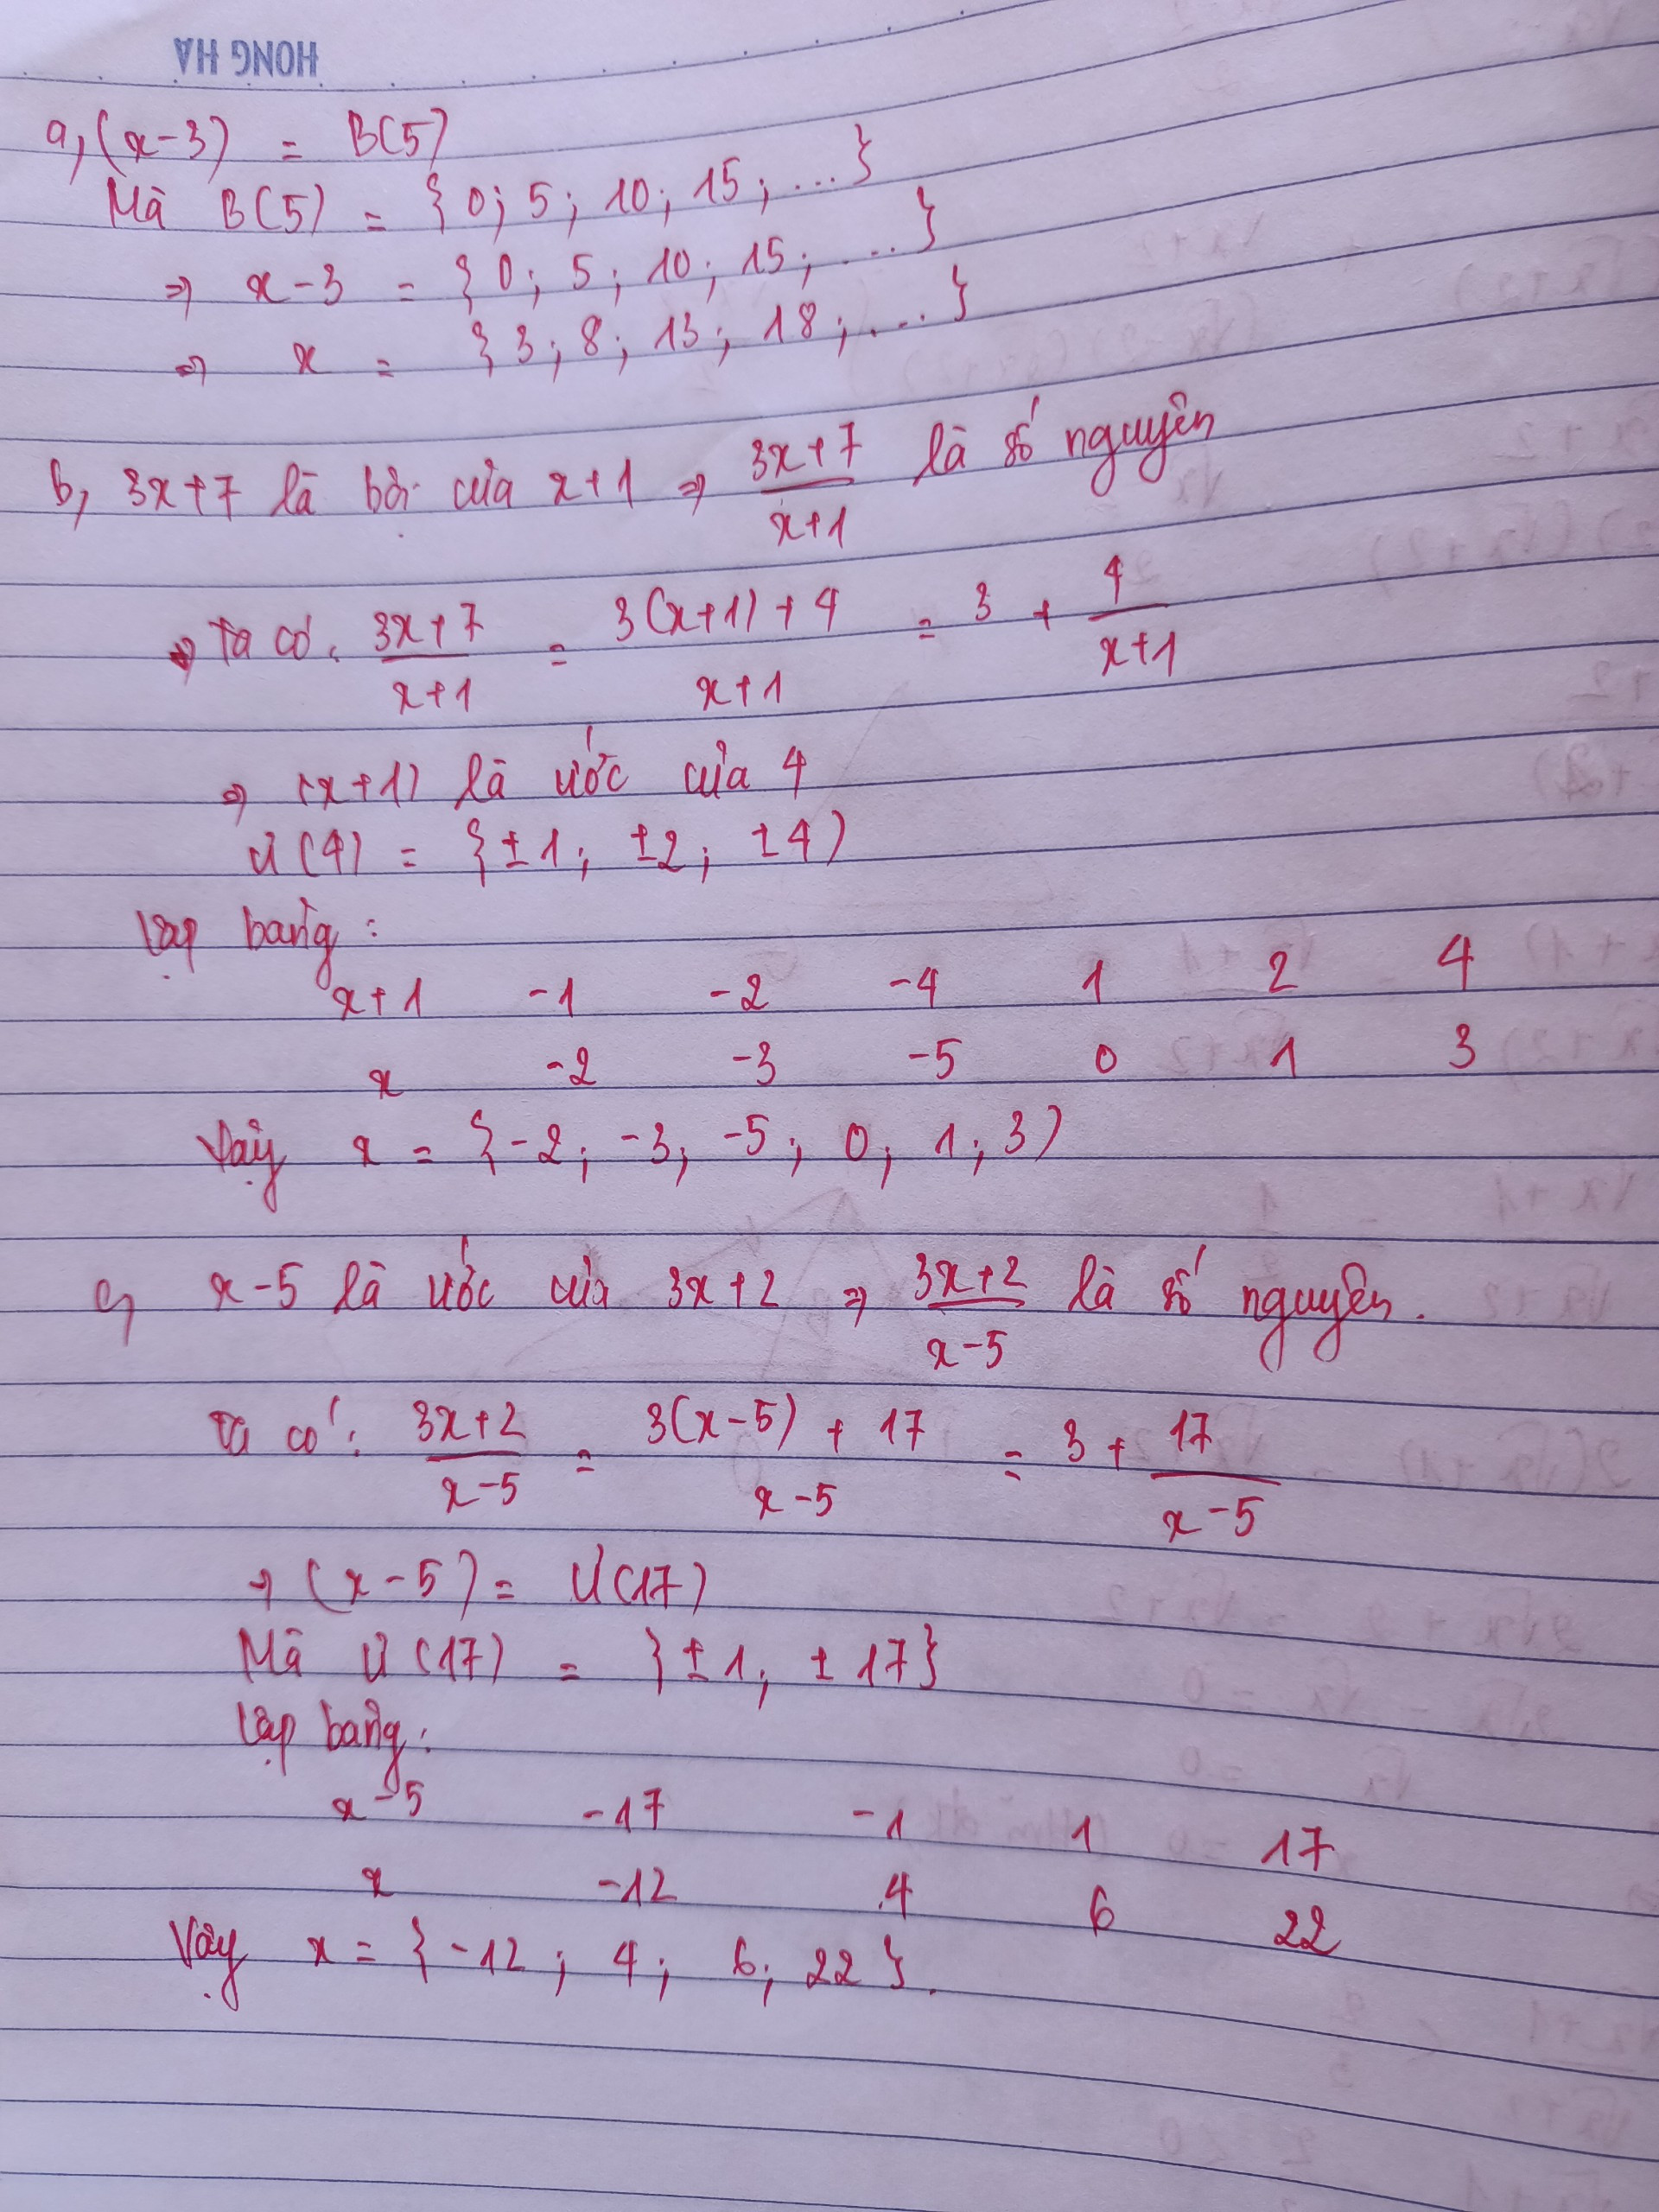 HONG HA
a, (x-3) = B(5)
Mà B(5) = { 0; 5; 10; 15; ...}
⇒ x-3 = { 0; 5; 10; 15; ...}
⇒ x = { 3; 8; 13; 18; ...}
b, 3x+7 là bội của x+1 ⇒ (3x+7)/(x+1) là số nguyên
⇒ Ta có: (3x+7)/(x+1) = (3(x+1)+4)/(x+1) = 3 + 4/(x+1)
⇒ (x+1) là ước của 4
Ư(4) = {±1; ±2; ±4)
Lập bảng:
x+1 -1 -2 -4 1 2 4
x -2 -3 -5 0 1 3
Vậy x = {-2; -3; -5; 0; 1; 3)
c, x-5 là ước của 3x+2 ⇒ (3x+2)/(x-5) là số nguyên.
Ta có: (3x+2)/(x-5) = (3(x-5)+17)/(x-5) = 3 + 17/(x-5)
⇒ (x-5) = Ư(17)
Mà Ư(17) = {±1; ±17}
Lập bảng:
x-5 -17 -1 1 17
x -12 4 6 22
Vậy x = {-12; 4; 6; 22}.